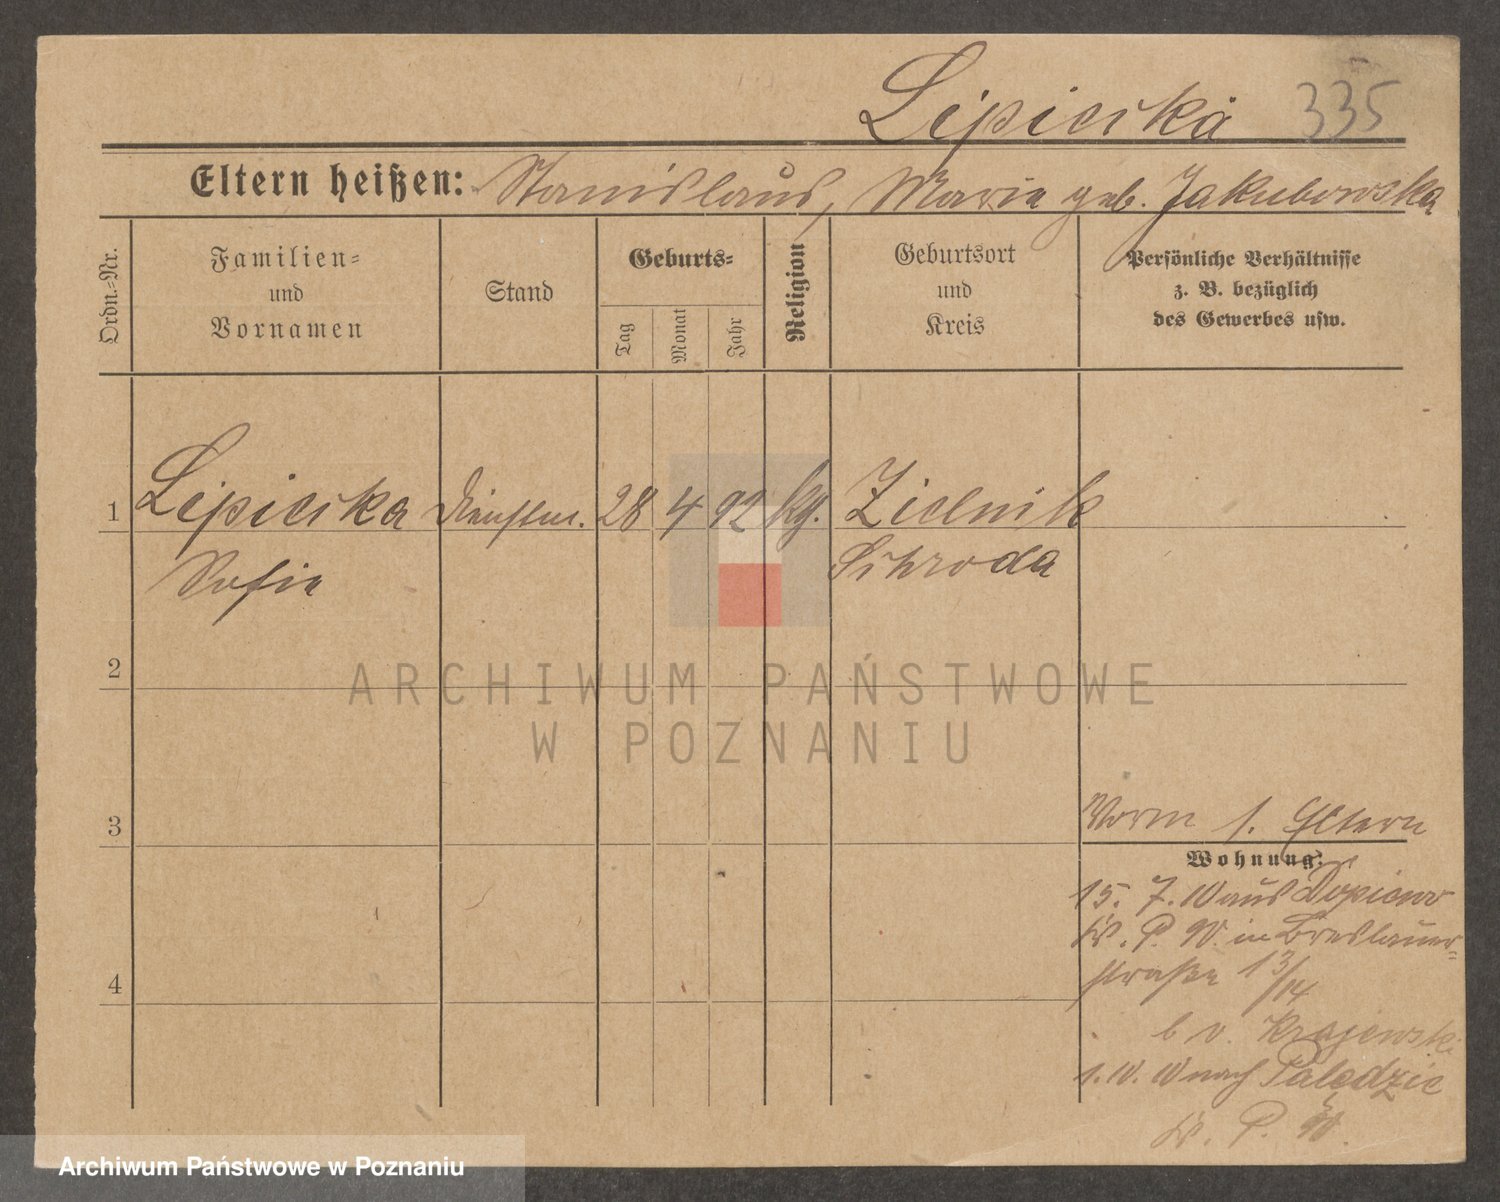 Lipicska 335
Eltern heißen: Stanislaus, Marie geb. Jakubowska
Ordn.-Nr.
Familien-
und
Vornamen
Stand
Geburts-
Tag
Monat
Jahr
Religion
Geburtsort
und
Kreis
Persönliche Verhältnisse
z. B. bezüglich
des Gewerbes usw.
1 Lipicska Dienstm. 28 4 92 kg. Zielnik
Sofie Schroda
2
3
Vorm s. Eltern
Wohnung:
15. 7. 10 aus Dopiewo
Kr. P. W. in Breslauer-
straße 13/14
b v. Krajewski
4
1. 10. 10 nach Paledzie
Kr. P. W.
ARCHIWUM PAŃSTWOWE
W POZNANIU
Archiwum Państwowe w Poznaniu